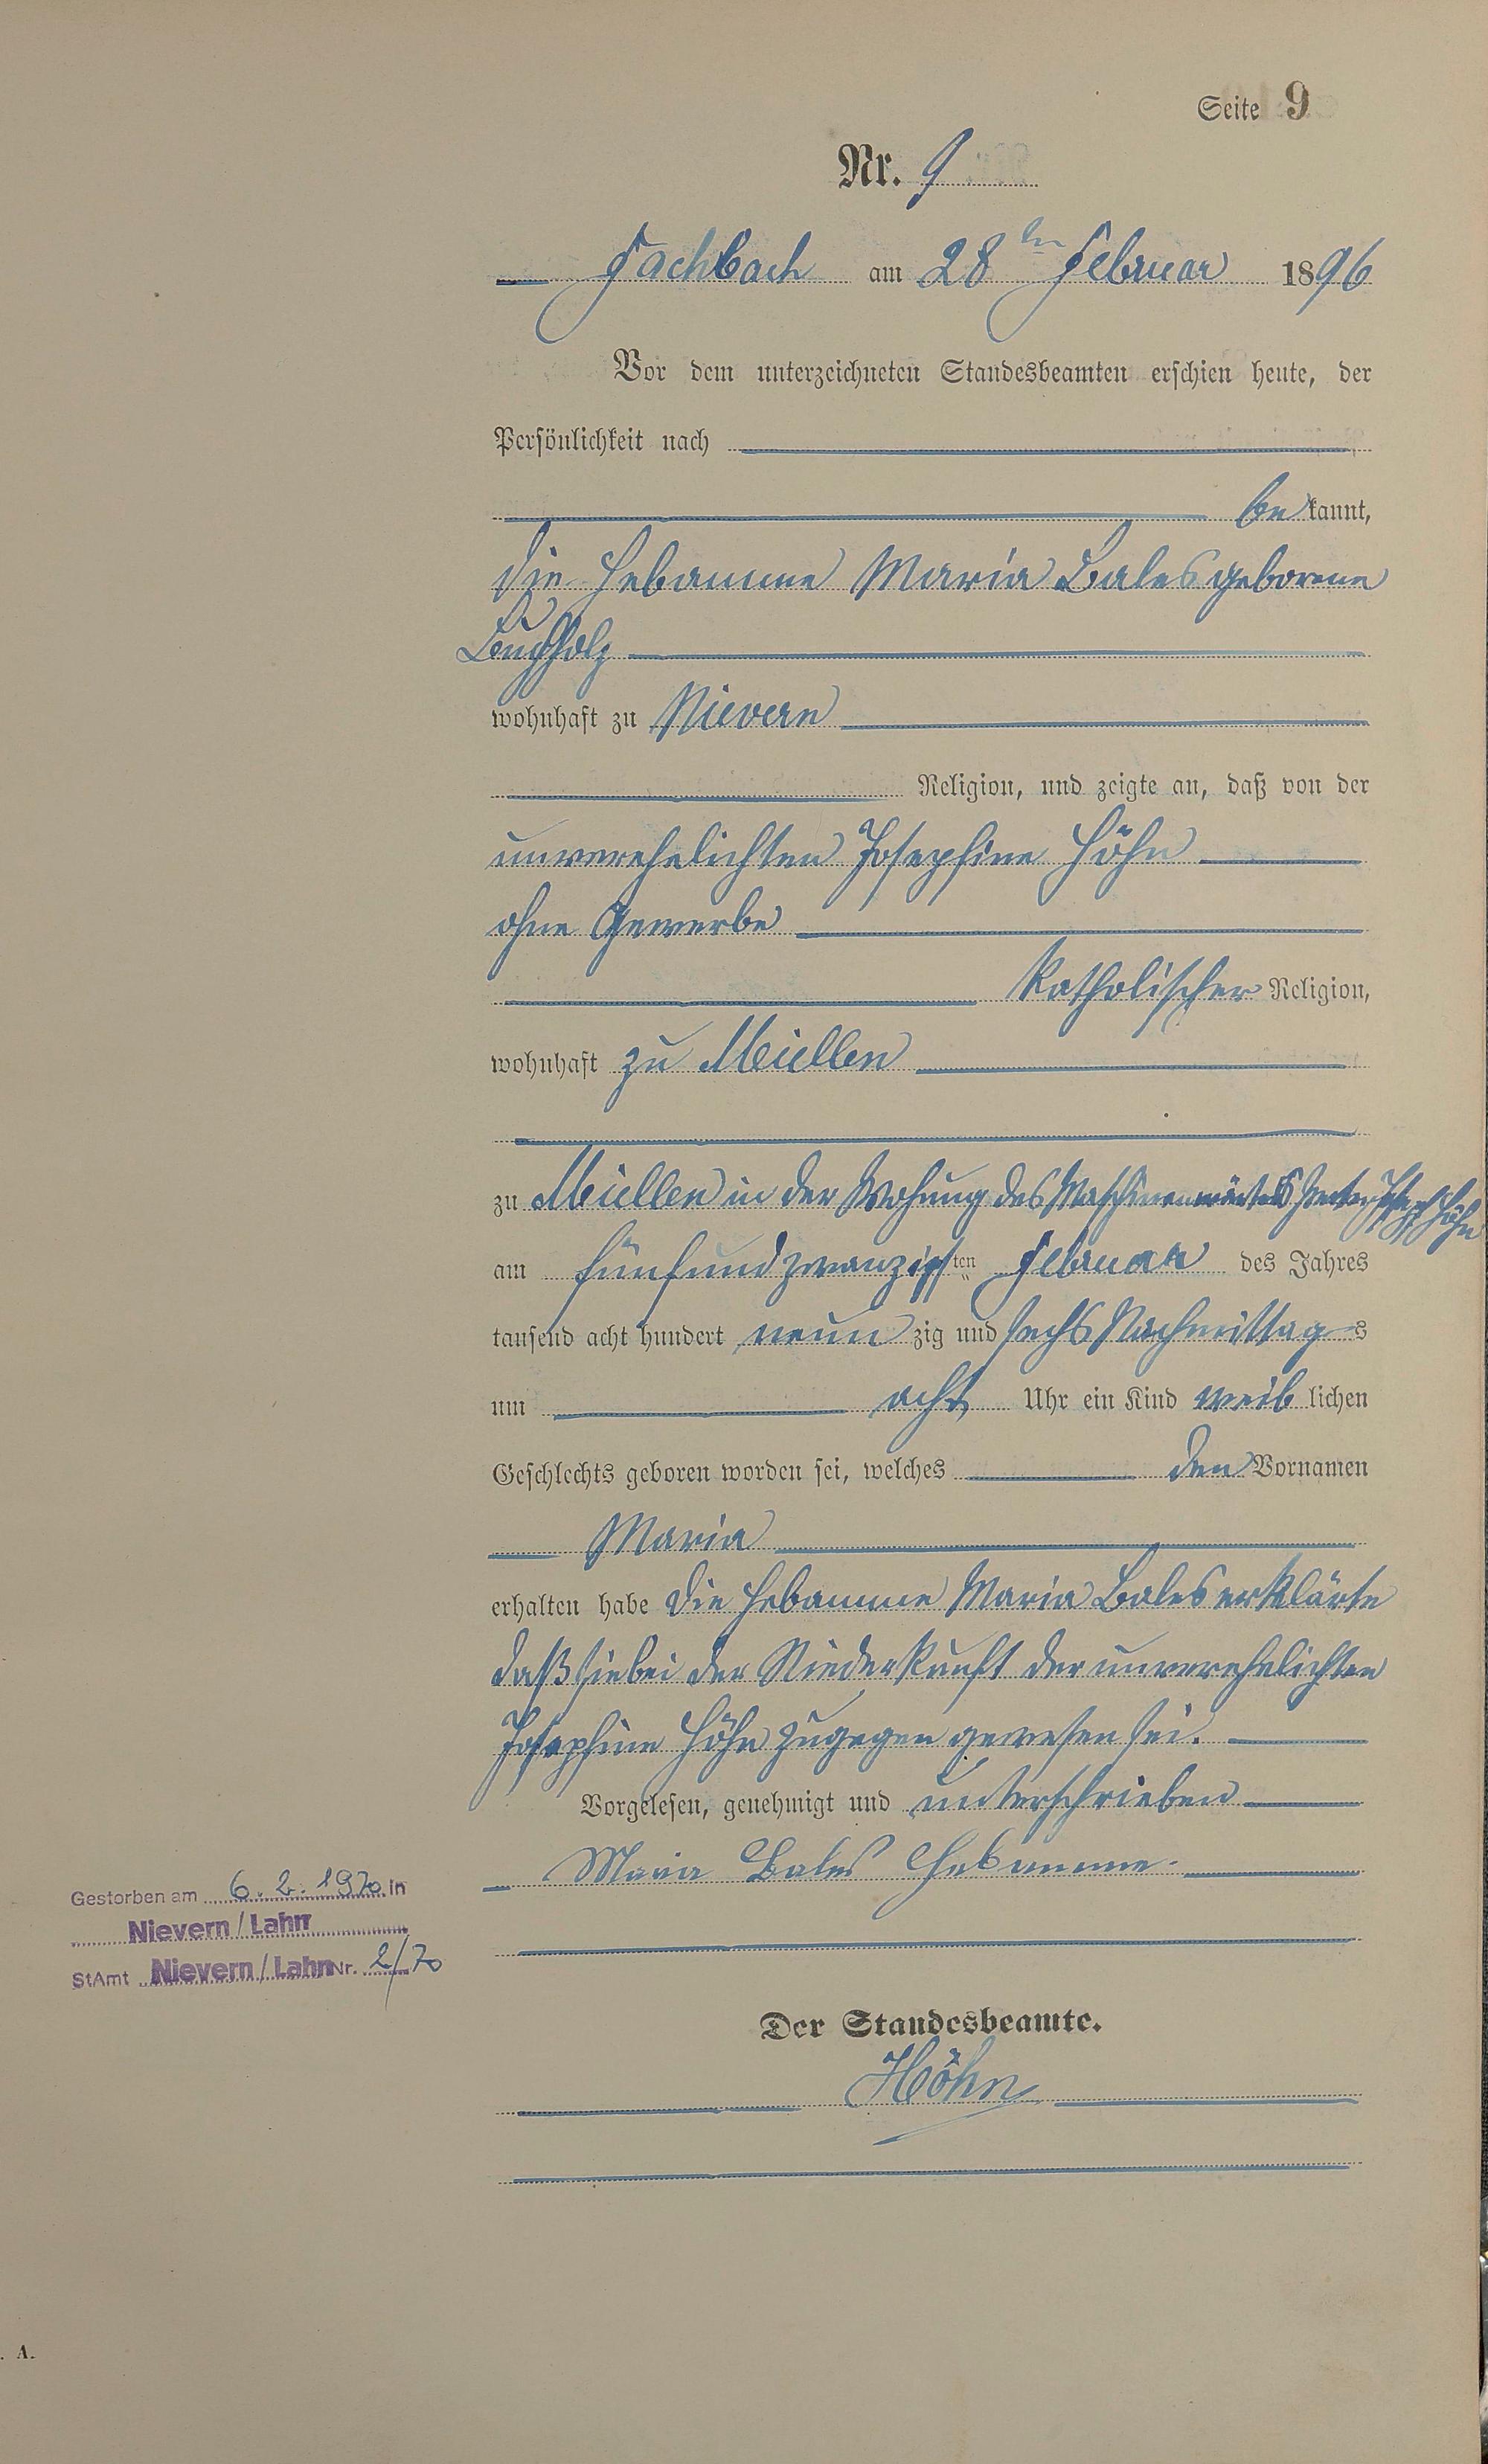 Seite 9
Nr. 9
Fachbach am 28ten Februar 1896
Vor dem unterzeichneten Standesbeamten erschien heute, der
Persönlichkeit nach
be kannt,
die Hebamme Maria Bales geborene
Buchholz
wohnhaft zu Nievern
Religion, und zeigte an, daß von der
unverehelichten Josephine Höhn
ohne Gewerbe
katholischer Religion,
wohnhaft zu Miellen
zu Miellen in der Wohung des Maschinenwärters Josef Höhn
am fünfundzwanzigsten Februar des Jahres
tausend acht hundert neun zig und sechs Nachmittag s
um acht Uhr ein Kind weib lichen
Geschlechts geboren worden sei, welches den Vornamen
Maria
erhalten habe die Hebamme Maria Bales erklärte
daß sie bei der Niederkunft der unverehelichten
Josephine Höhn zugegen gewesen sei.
Vorgelesen, genehmigt und unterschrieben
Maria Bales Hebamme.
Gestorben am 6. 2. 1970 in
Nievern/Lahn
StAmt Nievern/Lahn Nr. 2/70
Der Standesbeamte.
Höhn
. A.